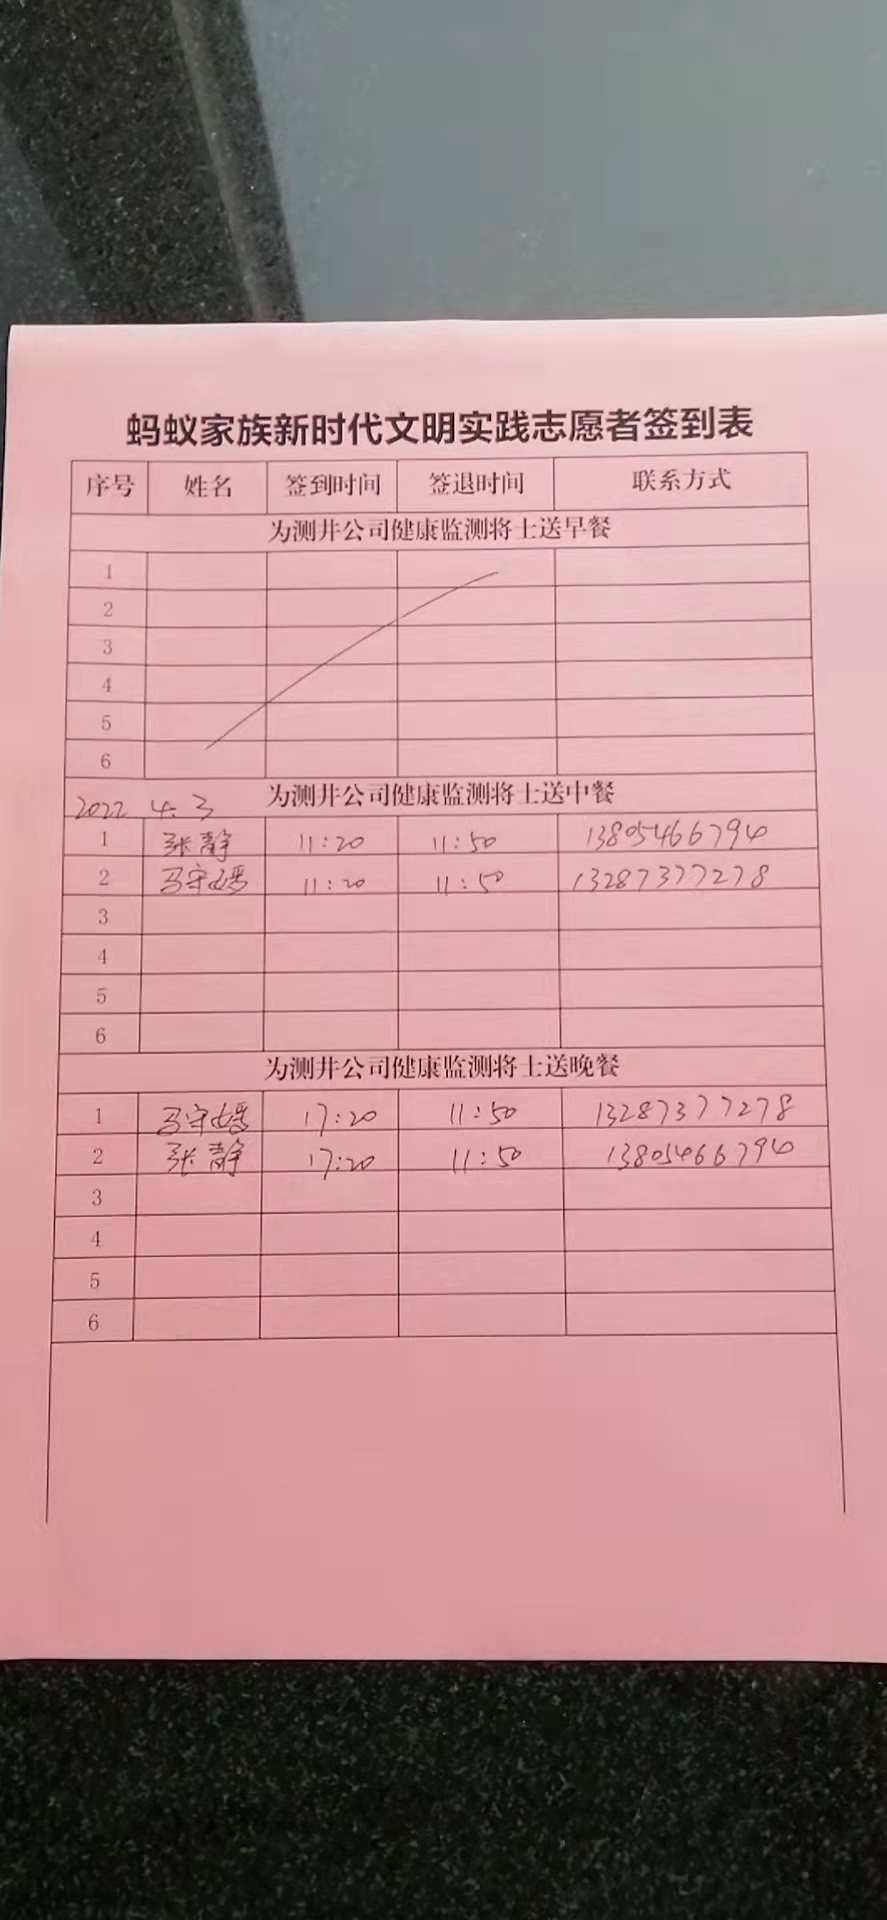 蚂蚁家族新时代文明实践志愿者签到表
序号 姓名 签到时间 签退时间 联系方式
为测井公司健康监测将士送早餐
1
2
3
4
5
6
2022 4.3 为测井公司健康监测将士送中餐
1 张静 11:20 11:50 13805466794
2 马守嫣 11:20 11:50 13287377278
3
4
5
6
为测井公司健康监测将士送晚餐
1 马守嫣 17:20 11:50 13287377278
2 张静 17:20 11:50 13805466794
3
4
5
6